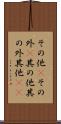 その他その
外其の他其
の外其他